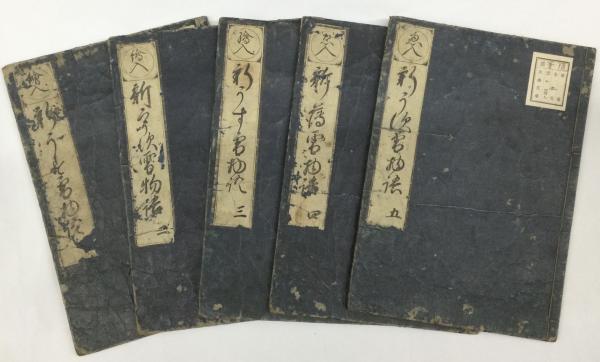 繪入
新うす雪物語
繪入
新宇須雪物語 二
繪入
新うす雪物語 三
ゑ入
新薄雪物語 四
ゑ入
新うす雪物語 五